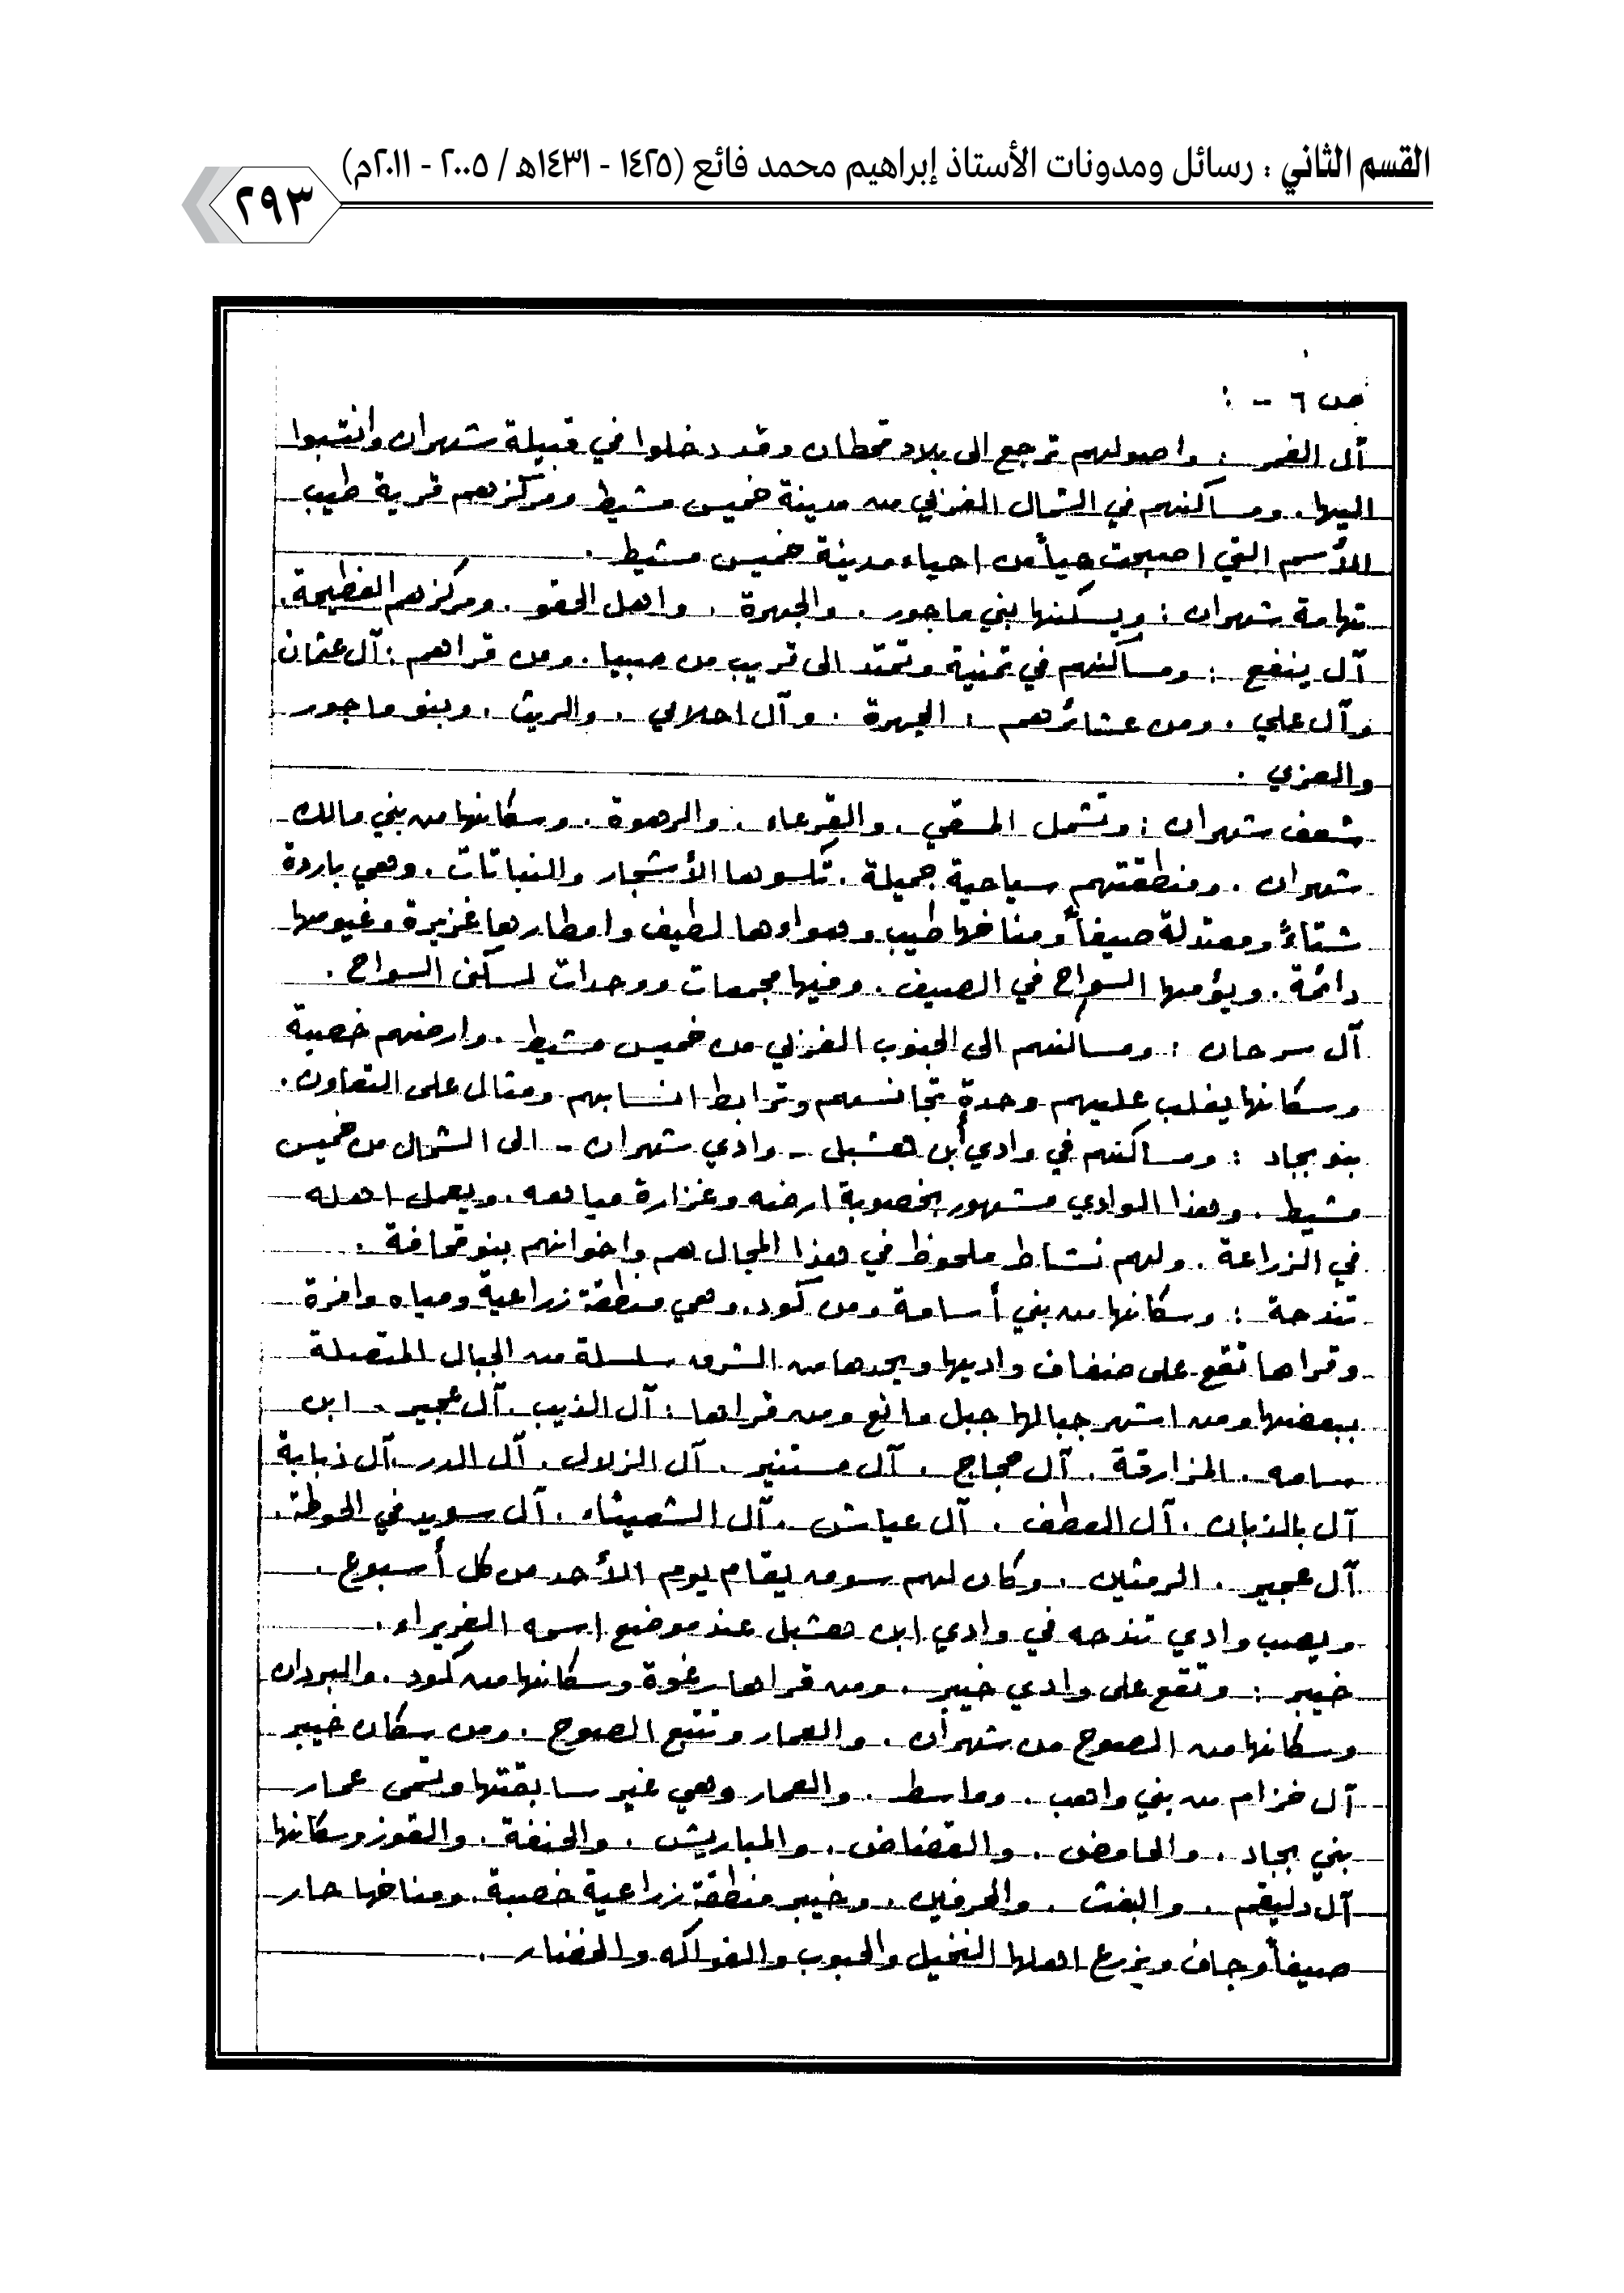 القسم الثاني : رسائل ومدونات الأستاذ إبراهيم محمد فائع (١٤٢٥ - ١٤٣١هـ / ٢٠٠٥ - ٢٠١١م)
٢٩٣
ص ٦ - :
آل الغمر : واصولهم ترجع الى بلاد قحطان وقد دخلوا في قبيلة شهران وانتسبوا
اليها . ومساكنهم في الشمال الغربي من مدينة خميس مشيط ومركزهم قرية طيب
الأسم التي اصبحت حياً من احياء مدينة خميس مشيط .
تهامة شهران : ويسكنها بني ماجور . والجهرة . واهل الحقو . ومركزهم الفطيحة .
آل ينفع : ومساكنهم في تمنية وتمتد الى قريب من صبيا . ومن قراهم : آل عثمان
وآل علي . ومن عشائرهم . الجهرة . وآل احلامي . والريث . وبنو ماجور
والعزي .
شعف شهران : وتشمل المسقي . والقرعاء . والرهوة . وسكانها من بني مالك
شهران . ومنطقتهم سياحية جميلة . تكسوها الأشجار والنباتات . وهي باردة
شتاءً ومعتدلة صيفاً ومناخها طيب وهواءها لطيف وامطارها غزيرة وغيومها
دائمة . ويؤمها السواح في الصيف . وفيها مجمعات ووحدات لسكن السواح .
آل سرحان : ومساكنهم الى الجنوب الغربي من خميس مشيط . وارضهم خصبة
وسكانها يغلب عليهم وحدة تجانسهم وترابط انسابهم ومثال على التعاون .
بنو بجاد : ومساكنهم في وادي أبن هشبل - وادي شهران - الى الشمال من خميس
مشيط . وهذا الوادي مشهور بخصوبة ارضه وغزارة مياهه . ويعمل اهله
في الزراعة . ولهم نشاط ملحوظ في هذا المجال هم واخوانهم بنو قحافة .
تندحة : وسكانها من بني أسامة ومن كود . وهي منطقة زراعية ومياه وافرة
وقراها تقع على ضفاف واديها ويحدها من الشرق سلسلة من الجبال المتصلة
ببعضها ومن اشهر جبالها جبل مانع ومن قراها : آل الذيب . آل عجير . ابن
سامه . المزارقة . آل حجاج . آل مستنير . آل الزلال . آل الدر . آل ذبابة
آل بالذبان . آل العطف . آل عياش . آل الشعيثاء . آل سويد في الحوطة .
آل عجير . الرمثين . وكان لهم سوق يقام يوم الأحد من كل أسبوع .
ويصب وادي تندحه في وادي ابن هشبل عند موضع اسمه الغريراء .
خيبر : وتقع على وادي خيبر . ومن قراها رغوة وسكانها من كود . والبردان
وسكانها من الصوح من شهران . والعمار وتتبع الصوح . ومن سكان خيبر
آل خزام من بني واهب . وماسط . والعمار وهي غير سابقتها وتسمى عمار
بني بجاد . والحامض . والقضاض . والمباريش . والحنفة . والقوز وسكانها
آل دليقم . والبغث . والحرفين . وخيبر منطقة زراعية خصبة . ومناخها حار
صيفاً وجاف ويزرع اهلها النخيل والحبوب والفواكه والخضار .